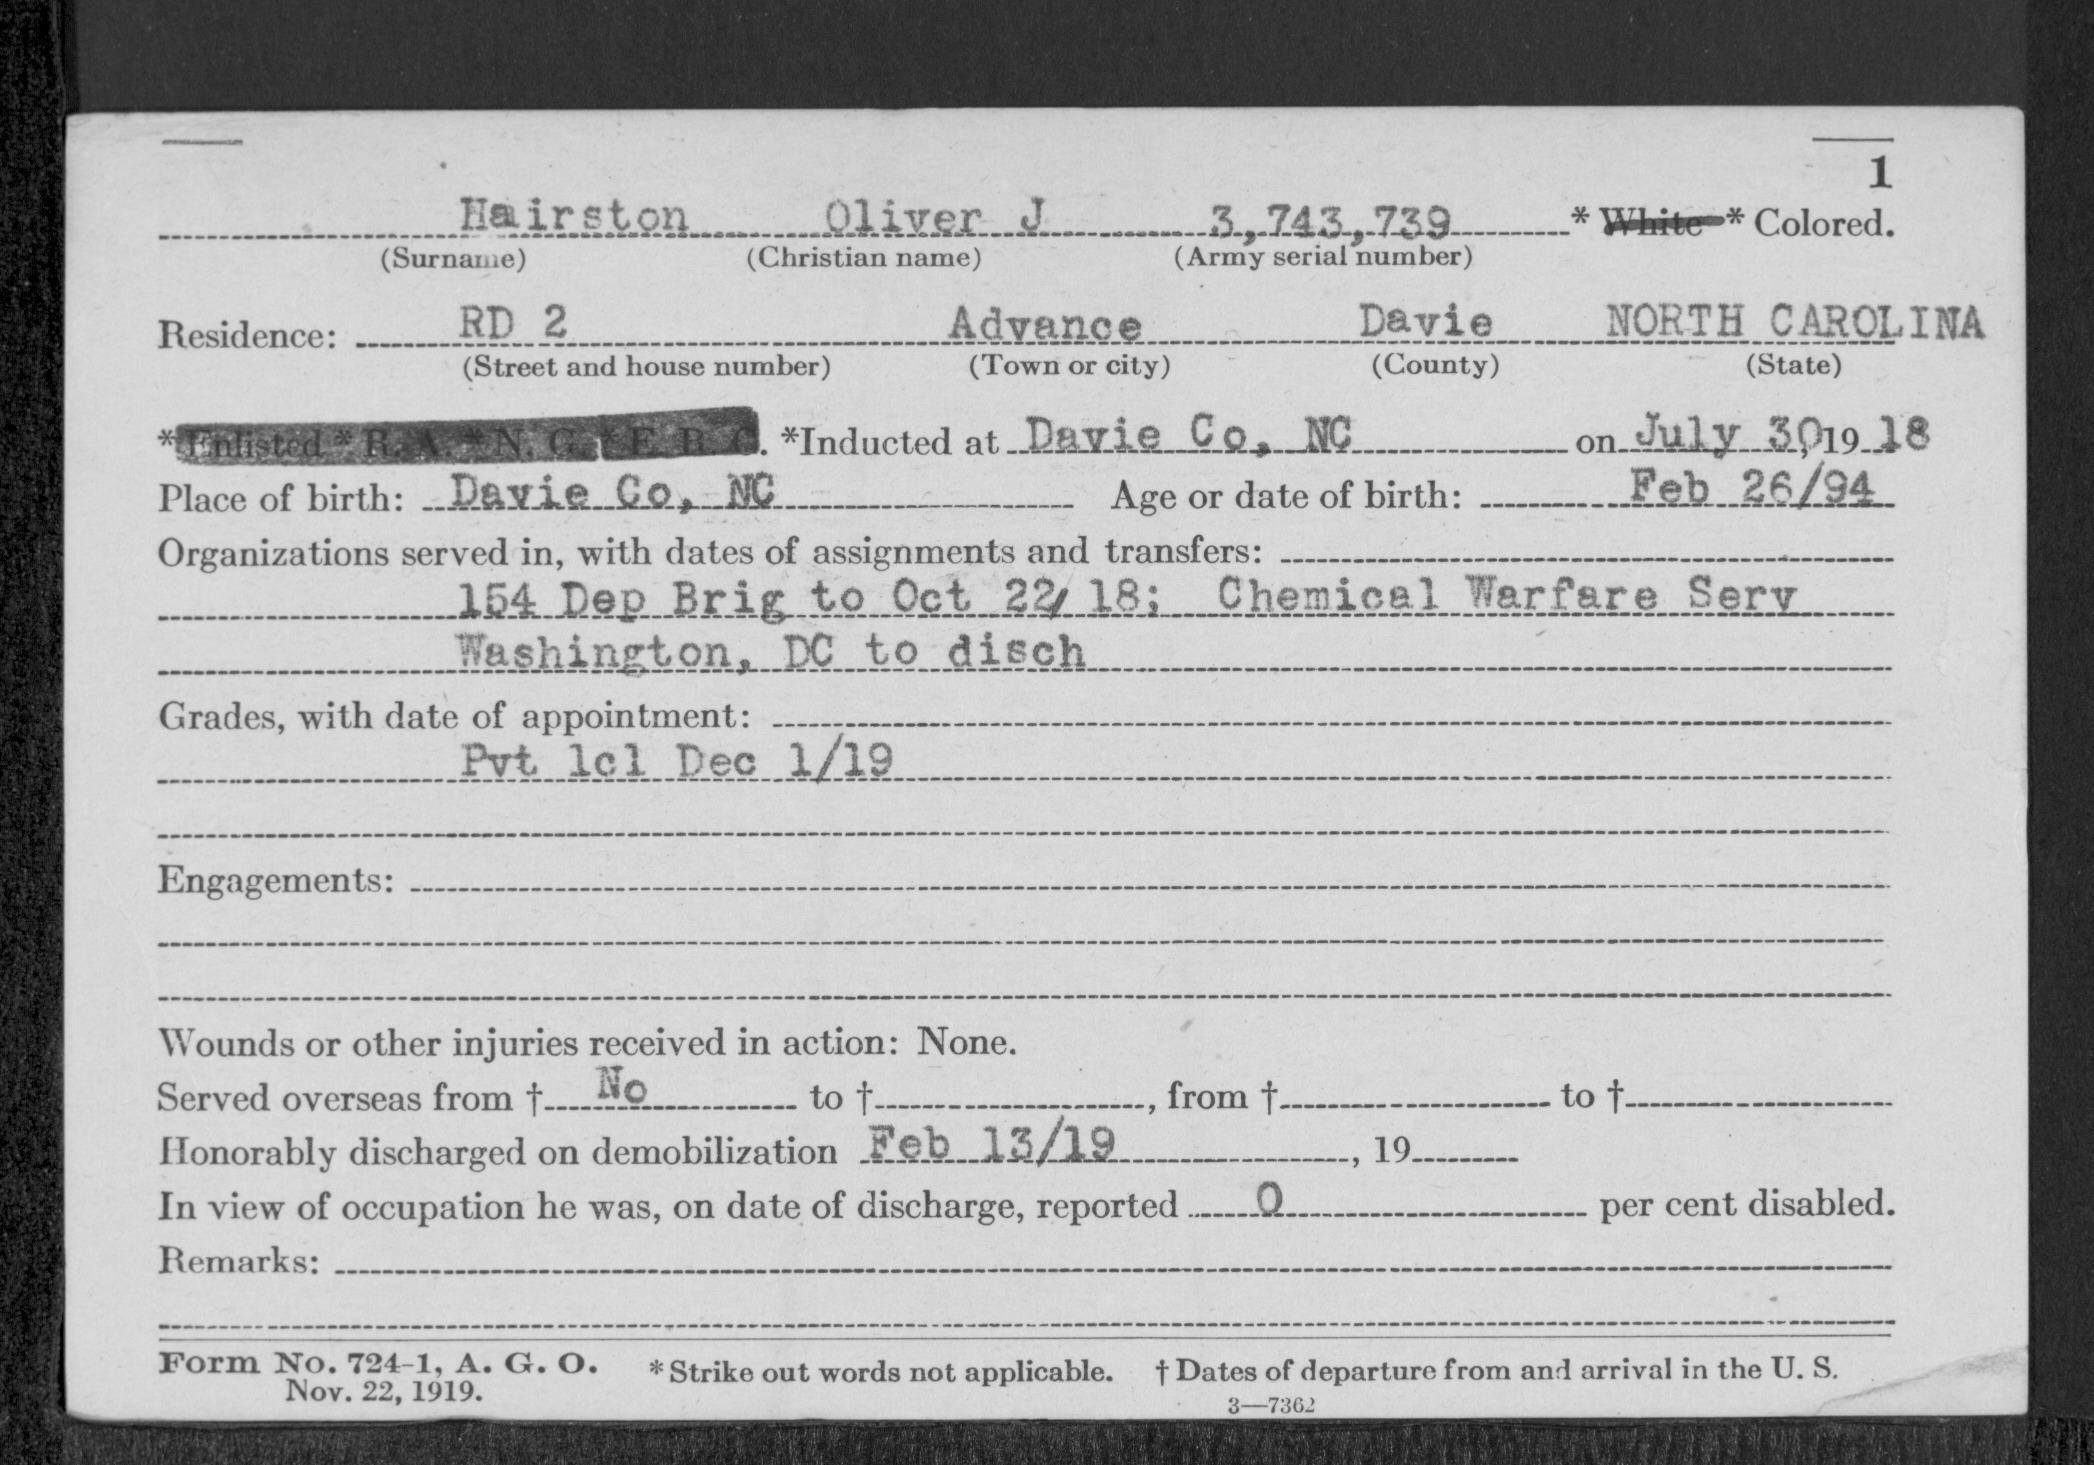 1
Hairston Oliver J 3,743,739 * White * Colored.
(Surname) (Christian name) (Army serial number)
Residence: RD 2 Advance Davie NORTH CAROLINA
(Street and house number) (Town or city) (County) (State)
* Enlisted * R. A. * N. G. * E. R. C. *Inducted at Davie Co, NC on July 30, 19 18
Place of birth: Davie Co, NC Age or date of birth: Feb 26/94
Organizations served in, with dates of assignments and transfers:
154 Dep Brig to Oct 22/ 18; Chemical Warfare Serv
Washington, DC to disch
Grades, with date of appointment:
Pvt 1cl Dec 1/19
Engagements:
Wounds or other injuries received in action: None.
Served overseas from † No to †, from † to †
Honorably discharged on demobilization Feb 13/19, 19
In view of occupation he was, on date of discharge, reported 0 per cent disabled.
Remarks:
Form No. 724-1, A. G. O. * Strike out words not applicable. † Dates of departure from and arrival in the U. S.
Nov. 22, 1919. 3—7362